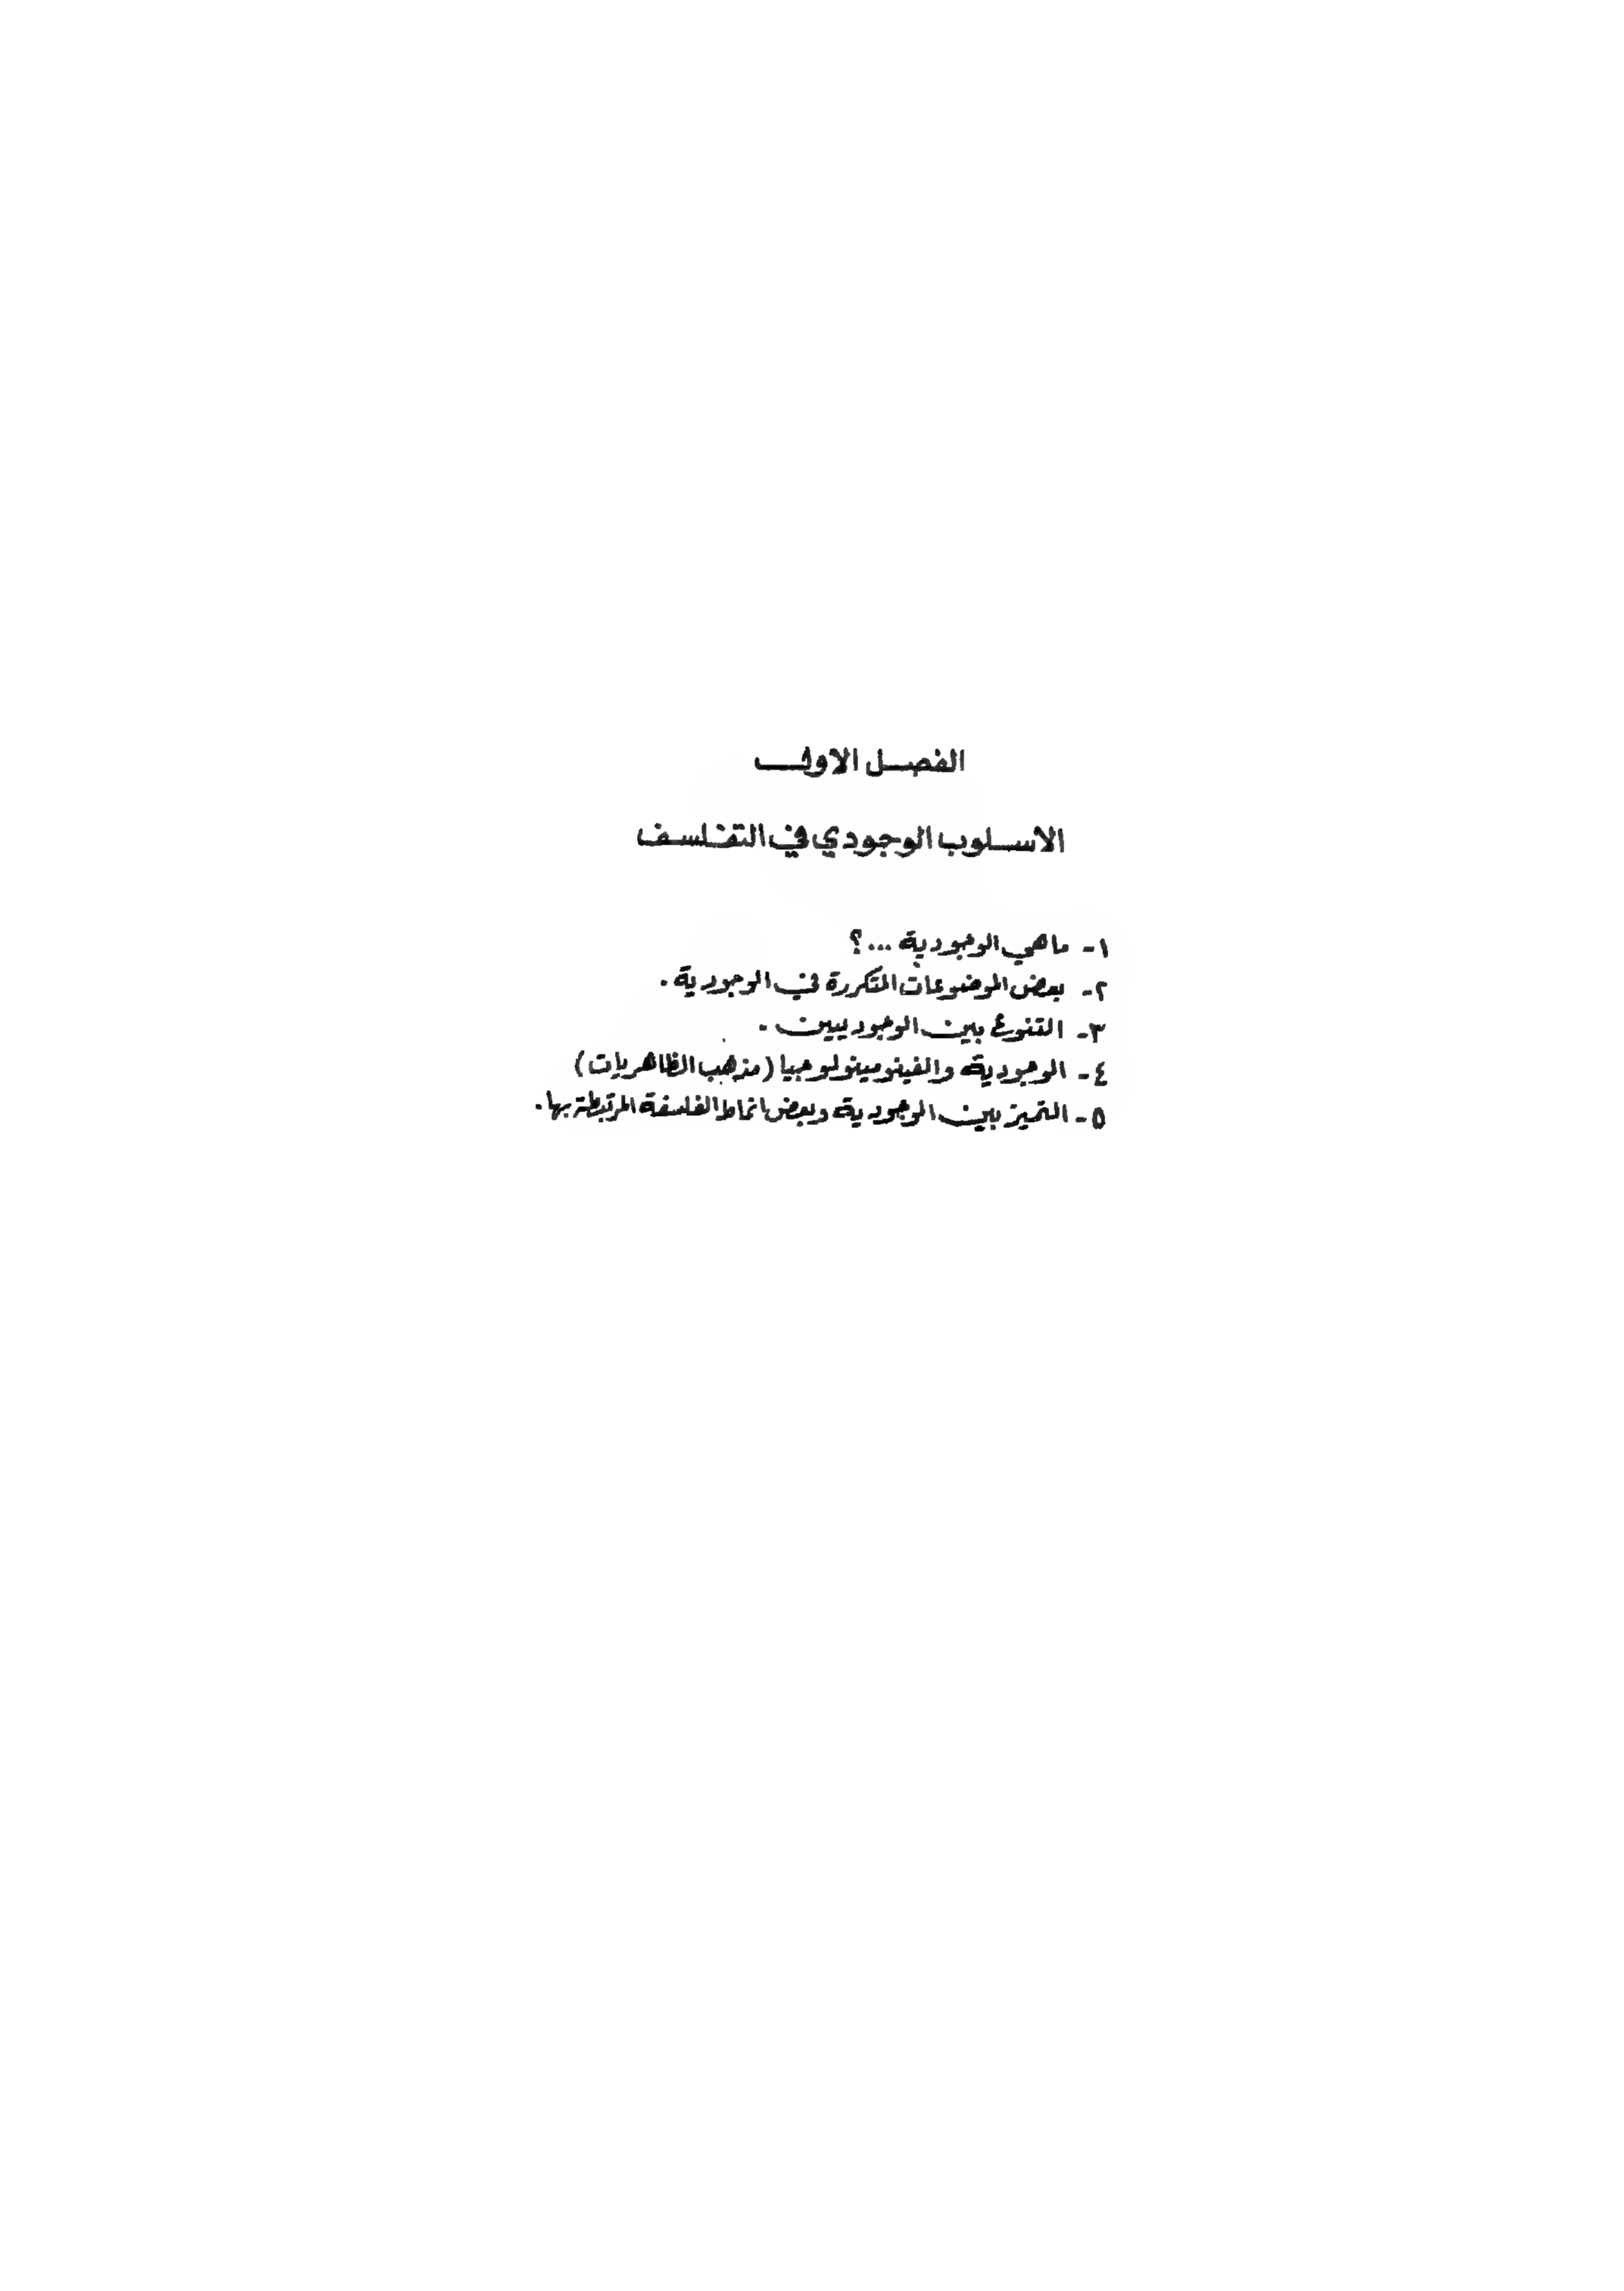 الفصل الاول
الاسلوب الوجودي في التفلسف
١- ماهي الوجودية ...؟
٢- بعض الموضوعات المتكررة في الوجودية.
٣- التنوع بين الوجوديين.
٤- الوجودية والفينومينولوجيا (مذهب الظاهريات)
٥- التميز بين الوجودية وبعض انماط الفلسفة المرتبطة بها.